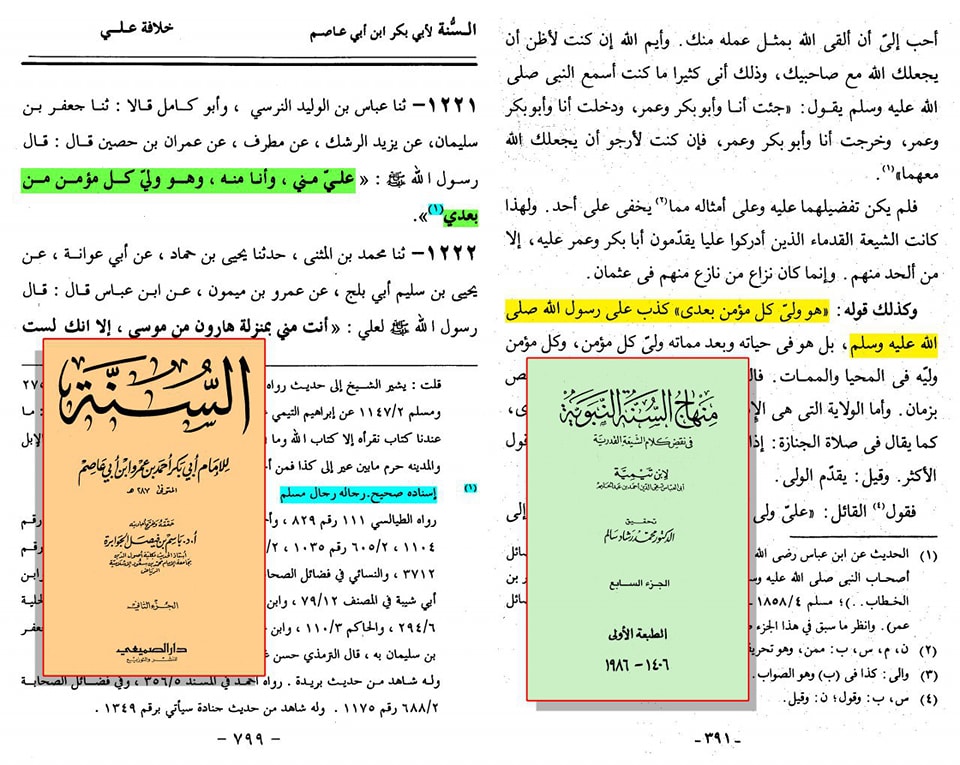 أحب إلىّ أن ألقى الله بمثل عمله منك. وأيم الله إن كنت لأظن أن
يجعلك الله مع صاحبيك، وذلك أنى كثيرا ما كنت أسمع النبى صلى
الله عليه وسلم يقول: «جئت أنا وأبو بكر وعمر، ودخلت أنا وأبوبكر
وعمر، وخرجت أنا وأبو بكر وعمر، فإن كنت لأرجو أن يجعلك الله
معهما»(١).
فلم يكن تفضيلهما عليه وعلى أمثاله مما(٢) يخفى على أحد. ولهذا
كانت الشيعة القدماء الذين أدركوا عليا يقدّمون أبا بكر وعمر عليه، إلا
من ألحد منهم. وإنما كان نزاع من نازع منهم فى عثمان.
وكذلك قوله: «هو ولىّ كل مؤمن بعدى» كذب على رسول الله صلى
الله عليه وسلم، بل هو فى حياته وبعد مماته ولىّ كل مؤمن، وكل مؤمن
وليّه فى المحيا والممات. فال
ص
بزمان. وأما الولاية التى هى الإ
ى،
كما يقال فى صلاة الجنازة: إذا
قول
الأكثر. وقيل: يقدّم الولى.
فقول(٤) القائل: «علىّ ولى
إلى
(١) الحديث عن ابن عباس رضى الله
سائل
أصحاب النبى صلى الله عليه وس
ر بن
الخطاب ..)؛ مسلم ١٨٥٨/٤
سائل
عمر). وانظر ما سبق فى هذا الجزء ص
(٢) ن، م، س، ب: ممن، وهو تحريف
(٣) والى: كذا فى (ب) وهو الصواب.
(٤) س، ب: وقول؛ ن: وقيل.
منهاج السنة النبوية
فى نقض كلام الشيعة القدرية
لابن تيمية
أبى العباس تقى الدين أحمد بن عبد الحليم
تحقيق
الدكتور محمد رشاد سالم
الجزء السابع
الطبعة الأولى
١٤٠٦ - ١٩٨٦
- ٣٩١ -
السنة لأبي بكر ابن أبي عاصم
خلافة علي
١٢٢١ – ثنا عباس بن الوليد النرسي ، وأبو كامل قالا : ثنا جعفر بن
سليمان، عن يزيد الرشك، عن مطرف، عن عمران بن حصين قال : قال
رسول الله ﷺ : « عليّ مني ، وأنا منه ، وهو وليّ كل مؤمن من
بعدي(١)».
١٢٢٢ – ثنا محمد بن المثنى ، حدثنا يحيى بن حماد ، عن أبي عوانة ، عن
يحيى بن سليم أبي بلج ، عن عمرو بن ميمون ، عن ابن عباس قال : قال
رسول الله ﷺ لعلي : «أنت مني بمنزلة هارون من موسى ، إلا انك لست
قلت : يشير الشيخ إلى حديث رواه
٢٧٥
ومسلم ١١٤٧/٢ عن إبراهيم التيمي
عندنا كتاب نقرأه إلا كتاب الله وما
: ما
والمدينه حرم مابين عير إلى كذا فمن أ
الإبل
(١) إسناده صحيح. رجاله رجال مسلم
رواه الطيالسي ١١١ رقم ٨٢٩ ، وأح
رقم
١١٠٤ ، ٦٠٥/٢ رقم ١٠٣٥ ،
رقم
٣٧١٢ ، والنسائي في فضائل الصحا
أبي شيبة في المصنف ٧٩/١٢ ، وابن
٢٩٤/٦ ، والحاكم ١١٠/٣ ، وابن
بن سليمان به ، قال الترمذي حسن غ
وله شاهد من حديث بريدة . رواه أحمد في المسند ٣٥٦/٥ ، وفي فضائل الصحابة
٦٨٨/٢ رقم ١١٧٥ . وله شاهد من حديث جنادة سيأتي برقم ١٣٤٩ .
السنة
للإمام أبي بكر أحمد بن عمرو ابن أبي عاصم
المتوفى ٢٨٧ هـ
حققه وخرج أحاديثه
أ.د. باسم بن فيصل الجوابرة
الرياض
الجزء الثاني
دار الصميعي
للنشر والتوزيع
– ٧٩٩ –